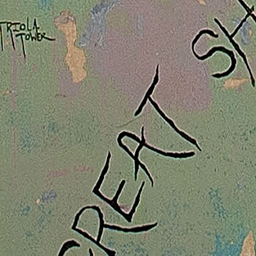 TRIOLA
TOWER
GREAT